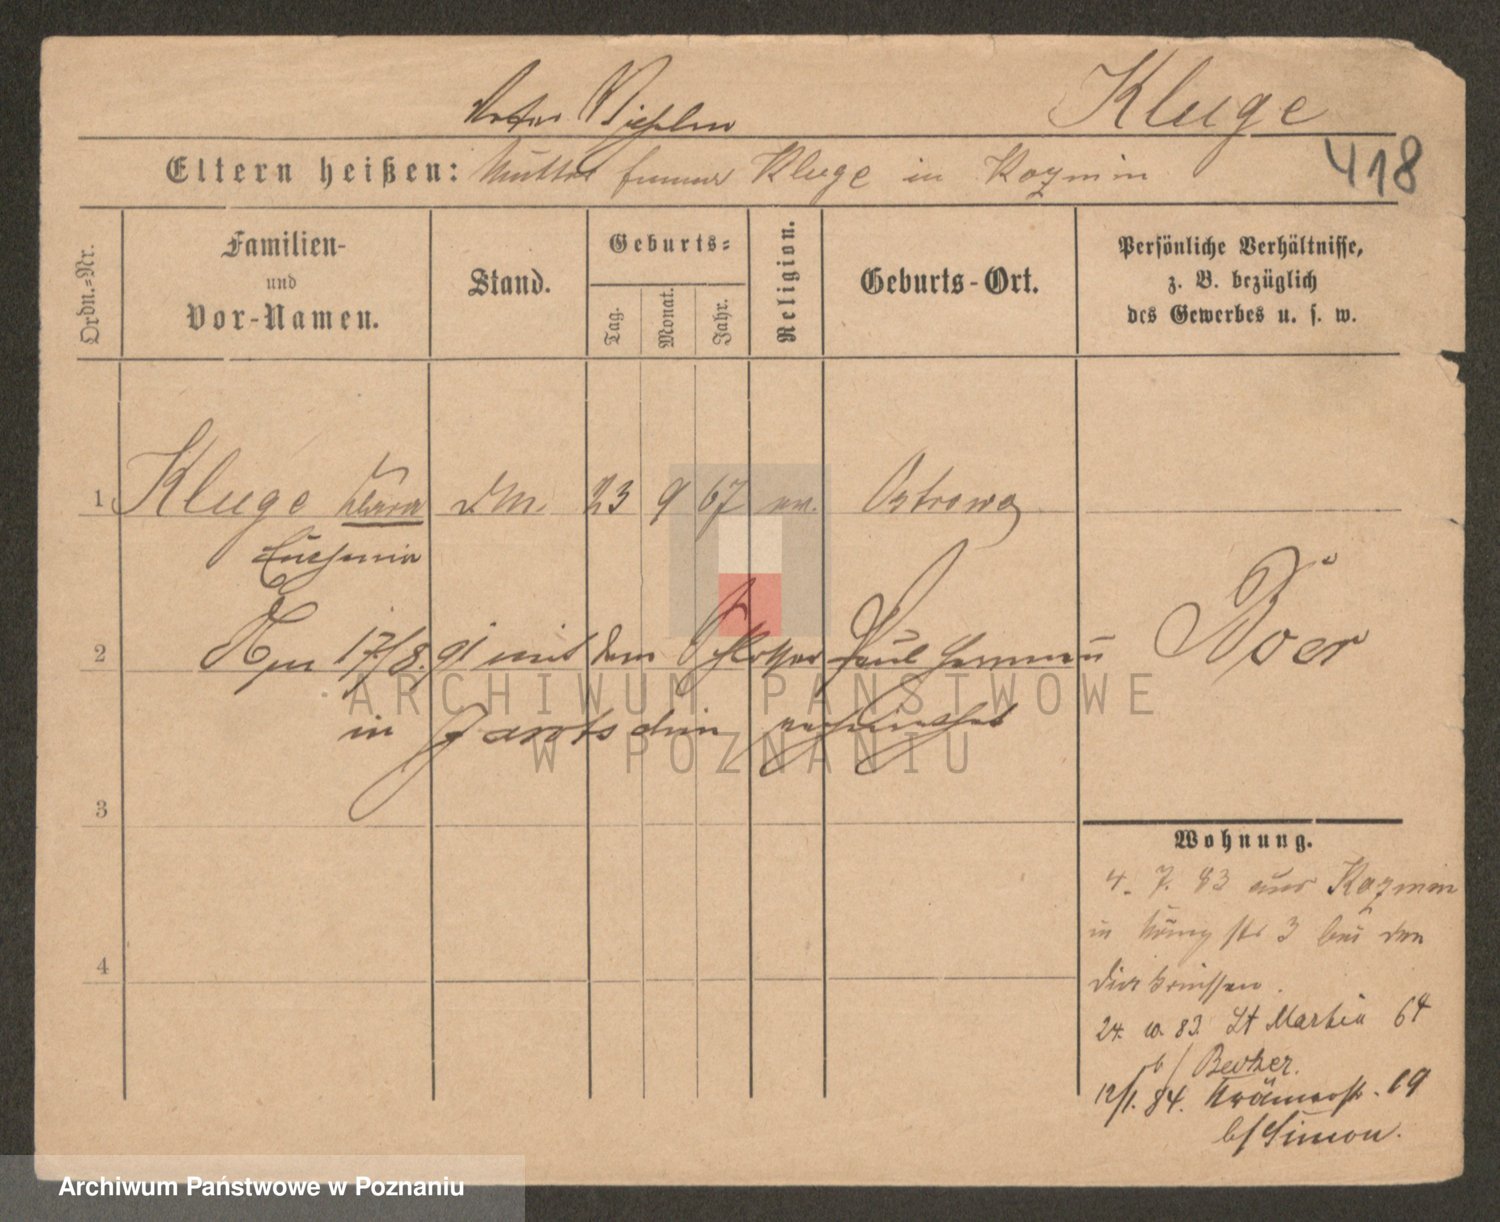 Vater Wilhelm Kluge
Eltern heißen: Mutter Emma Kluge in Kozmin
418
Ordn.-Nr.
Familien-
und
Vor-Namen.
Stand.
Geburts-
Tag.
Monat.
Jahr.
Religion.
Geburts-Ort.
Persönliche Verhältnisse,
z. B. bezüglich
des Gewerbes u. s. w.
1 Kluge Clara 23 9 67 ev. Ostrowo
Eugenie
2 Am 17/8. 91 mit dem Paul Hermann Boer
in Jarotschin verheirathet
ARCHIWUM PAŃSTWOWE
W POZNANIU
3
4
Wohnung.
4. 7. 83 aus Kozmin
in König str 3 bei den
Diakonissen.
24. 10. 83. St Martin 64
b/ Becker.
12/1. 84. Krämerstr. 19
b/ Simon.
Archiwum Państwowe w Poznaniu